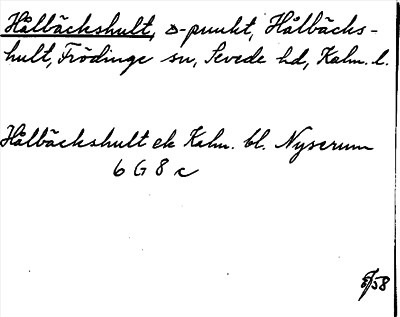 Hålbäckshult, △-punkt, Hålbäcks-
hult, Frödinge sn, Sevede hd, Kalm. l.
Hålbäckshult ek Kalm. bl. Nyserum
6 G 8 c
/58